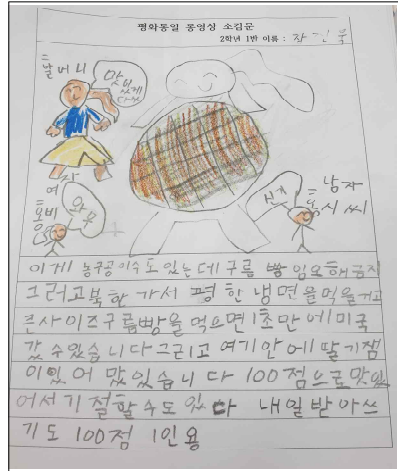 평화통일 동영상 소감문
2학년 1반 이름 : 장진욱
날머니
맛있게 다쓰
여자
와우
신기
남자
이게 농구공이수도 있는데 구름 빵
그러고 북한 가서 평한냉면을 먹을거고
큰사이즈구름빵을 먹으면 1초만에미국
갔 수있습니다그리고 여기안에 딸기잼
이있어 맛있습니다 100점으로맛있
어서 기절할수도 있다 내일받아쓰
기도 100점 1인용